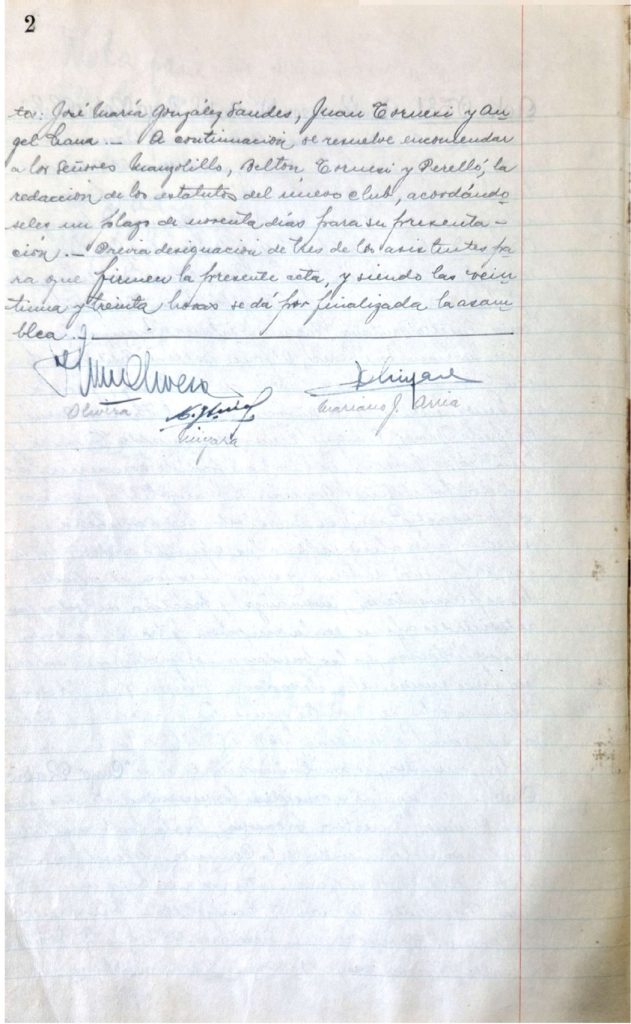 2
tes: José María González Sandes, Juan Cornesi y An
gel Cava. — A continuación, se resuelve encomendar
a los Señores Mangolillo, Delton Cornesi y Perelló, la
redacción de los estatutos del nuevo club, acordándo
seles un plazo de noventa días para su presenta-
ción. — Previa designación de tres de los asistentes pa
ra que firmen la presente acta, y siendo las vein
tiuna y treinta horas se dá por finalizada la asam-
blea.
Olivera
Mariano J. Arria